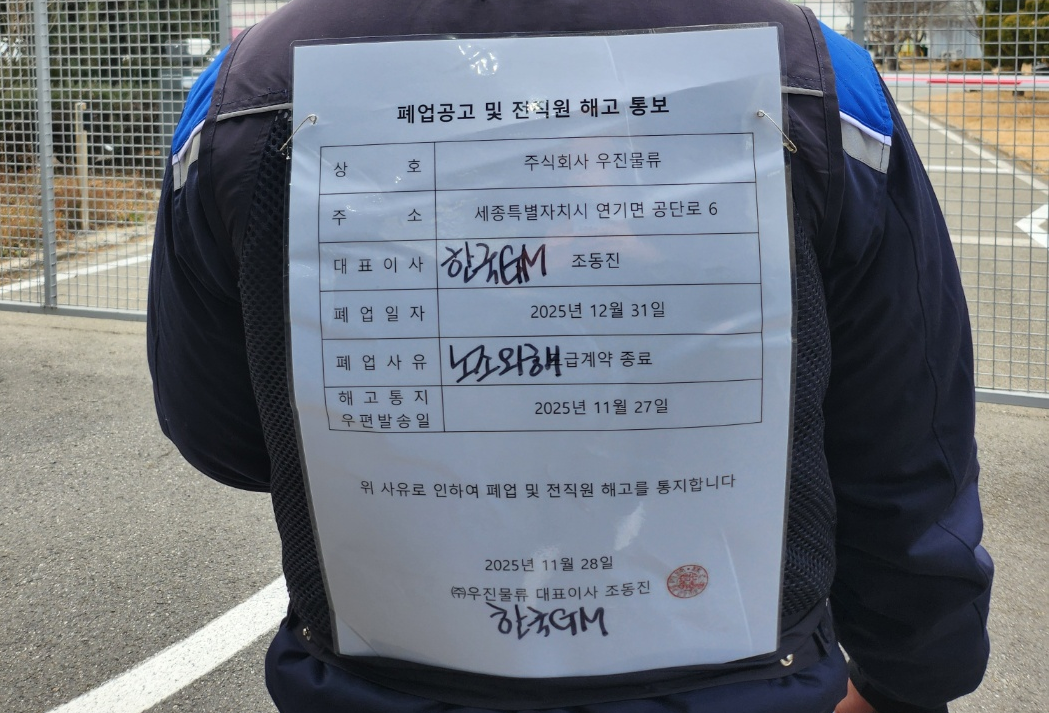 폐업공고 및 전직원 해고 통보
상 호 주식회사 우진물류
주 소 세종특별자치시 연기면 공단로 6
대 표 이 사 한국GM 조동진
폐 업 일 자 2025년 12월 31일
폐 업 사 유 노조와해 급계약 종료
해 고 통 지
우편발송일 2025년 11월 27일
위 사유로 인하여 폐업 및 전직원 해고를 통지합니다
2025년 11월 28일
㈜우진물류 대표이사 조동진
한국GM